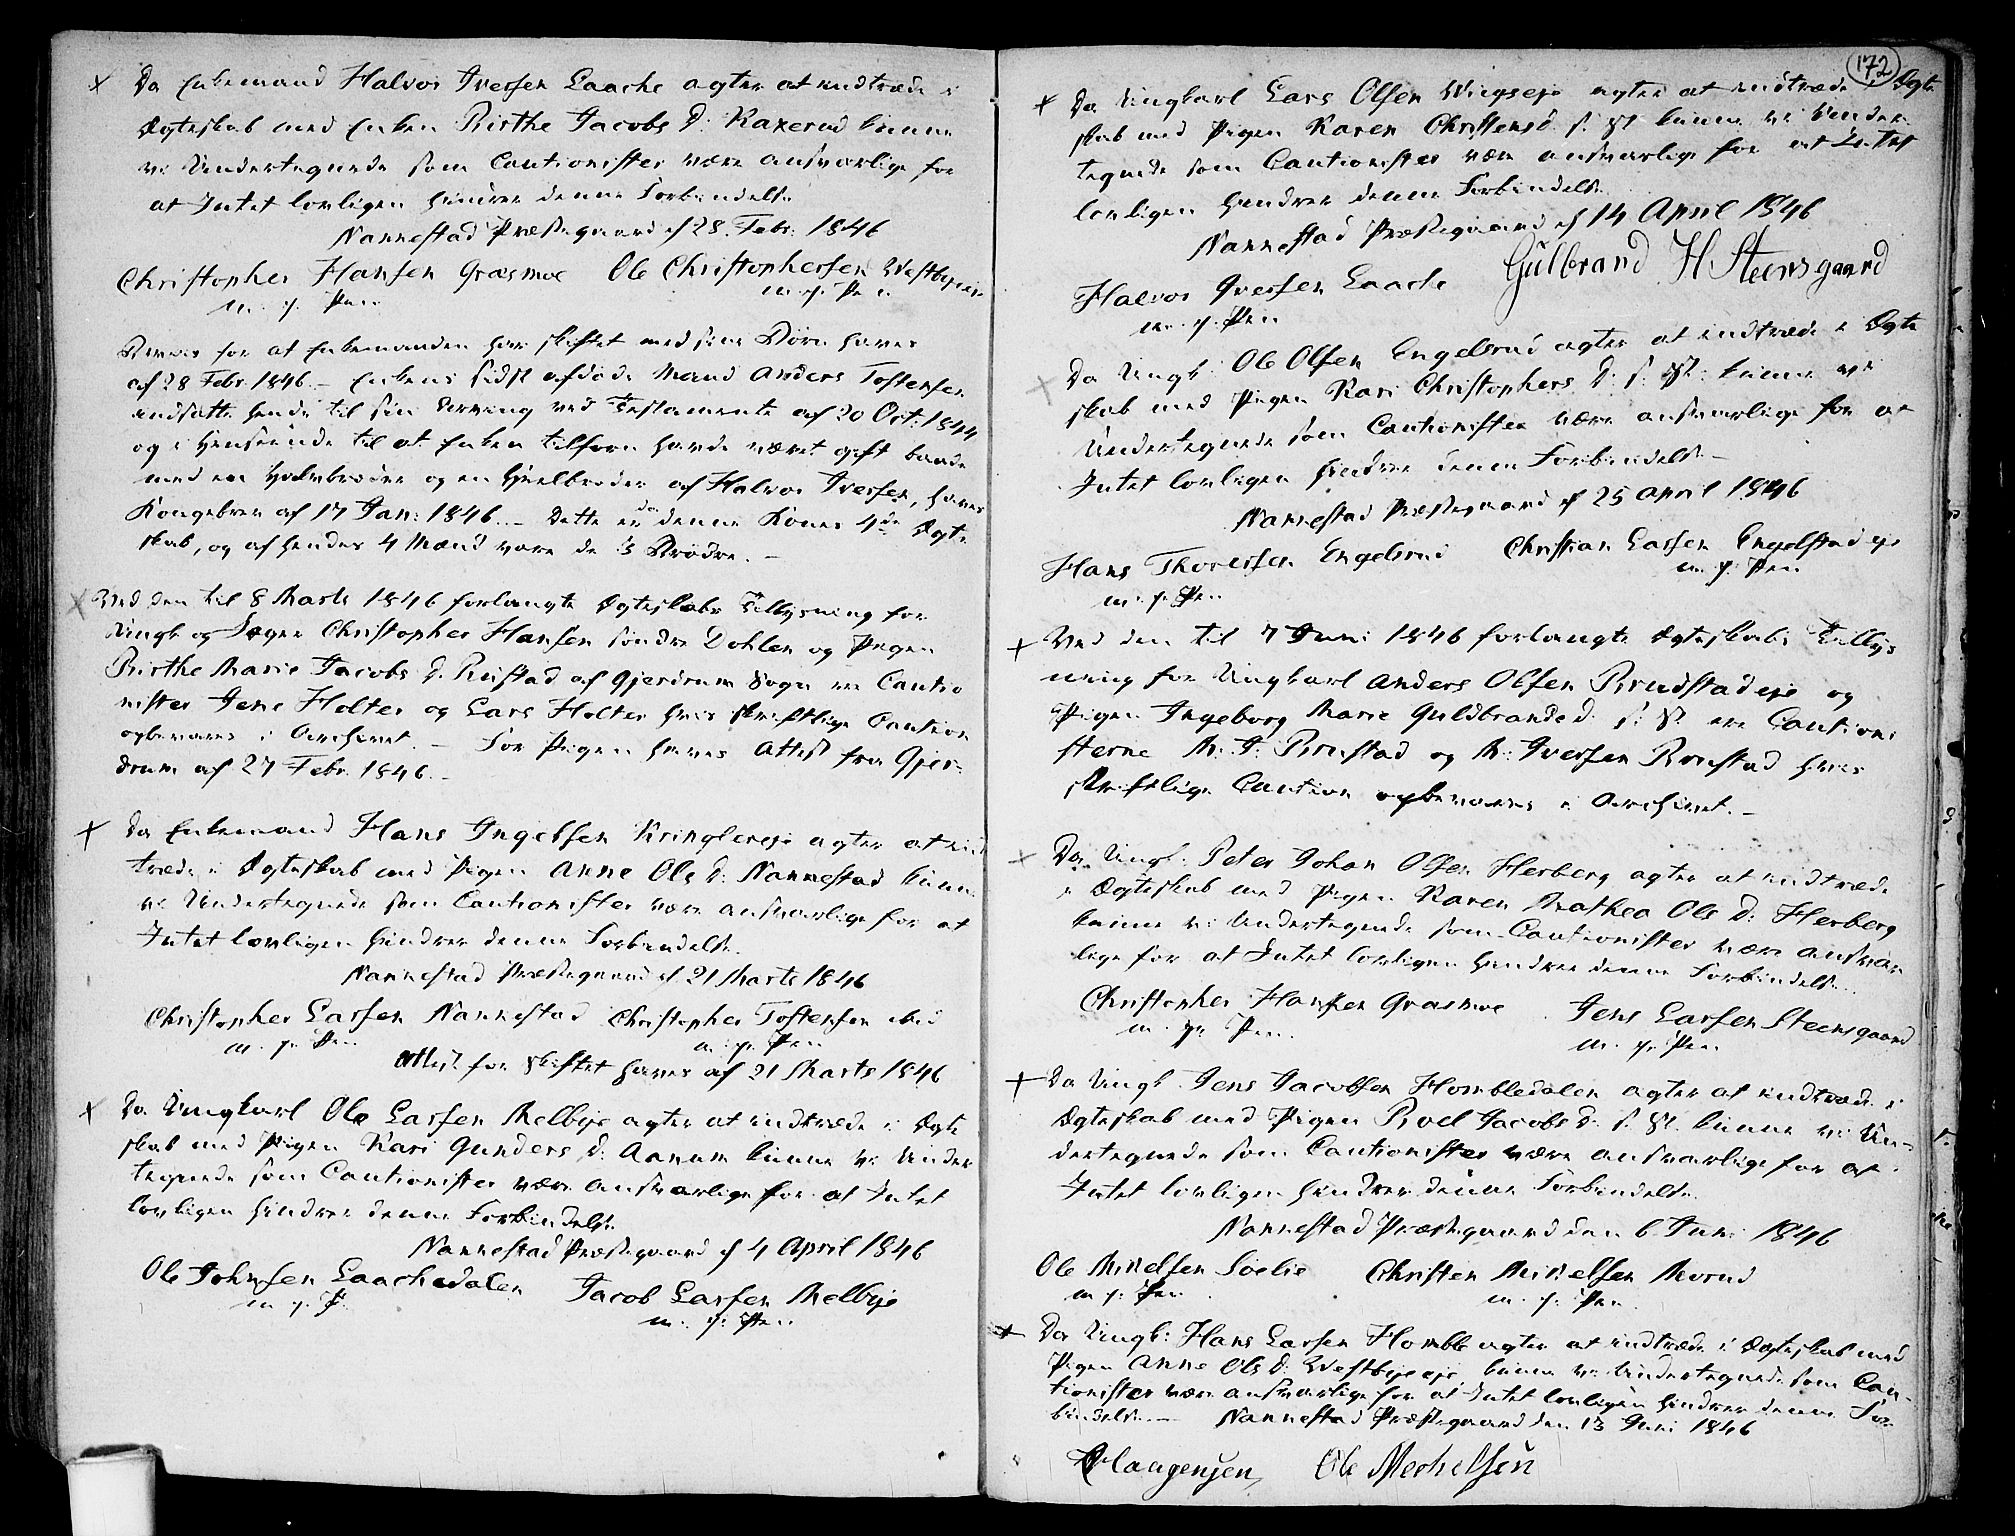 Da Enkemand Halvor Iversen Laache agter at indtræde i
Ægteskab med Enken Birthe Jacobs D: Kaxerud kunne
vi Undertegnede som Cautionister være ansvarlige for
at Intet lovligen hindrer denne Forbindelse.
Nannestad Præstegaard d 28 Febr: 1846
Christopher Hansen Græsmoe Ole Christophersen Westbyeie
m. p: Pen m. p: Pen
Beviis for at Enkemanden har skiftet med sine Børn haves
af 28 Febr. 1846. - Enkens sidst afdøde Mand Anders Tostensen
indsatte hende til sin Arving ved Testamente af 20 Oct: 1844
og i Henseende til at Enken tilforn havde været gift baade
med en Halvbroder og en Heelbroder af Halvor Iversen, haves
Kongebrev af 17 Jan: 1846. - Dette er da denne Kones 4de Ægte
skab, og af hendes 4 Mænd vare de 3 Brødre. -
Ved den til 8 Marts 1846 forlangte Ægteskabs Tillysning for
Ungk og Jæger Christopher Hansen søndre Dohlen og Pigen
Birthe Marie Jacobs D. Rustad af Gjerdrum Sogn ere Cautio
nister Jens Holter og Lars Holter hvis skriftlige Caution
opbevares i Archivet. - For Pigen haves Attest fra Gjer-
drum af 27 Febr. 1846. -
Da Enkemand Hans Ingebsen Kringlereie agter at ind
træde i Ægteskab med Pigen Anne Ols D: Nannestad kunne
vi Undertegnede som Cautionister være ansvarlige for at
Intet lovligen hindrer denne Forbindelse.
Nannestad Præstegaard d 21 Marts 1846
Christopher Larsen Nannestad Christopher Tostensen ibid
m. p. Pen m. p. Pen
Attest for Skiftet haves af 21 Marts 1846
Da Ungkarl Ole Larsen Melbye agter at indtræde i Ægte
skab med Pigen Kari Gunders D. Aanum kunne vi Under
tegnede som Cautionister være ansvarlige for at Intet
lovligen hindrer denne Forbindelse.
Nannestad Præstegaard d 4 April 1846
Ole Johnsen Laachedalen Jacob Larsen Melbye
m. p. P. m. p: Pen
172
Da Ungkarl Lars Olsen Wiigseie agter at indtræde i Ægte
skab med Pigen Karen Christensd. s: St kunne vi Under
tegnede som Cautionister være ansvarlige for at Intet
lovligen hindrer denne Forbindelse.
Nannestad Præstegaard d 14 April 1846
Halvor Iversen Laache Gulbrand H Steensgaard
m. p. Pen
Da Ungk: Ole Olsen Engelsrud agter at indtræde i Ægte
skab med Pigen Kari Christophers D: s: St: kunne vi
Undertegnede som Cautionister være ansvarlige for at
Intet lovligen hindrer denne Forbindelse -
Nannestad Præstegaard d 25 April 1846
Hans Thoresen Engelsrud Christian Larsen Engelstadeje
m. p. Pen m. p: Pen
Ved den til 7 Juni 1846 forlangte Ægteskabs Tillys
ning for Ungkarl Anders Olsen Brudstadeje og
Pigen Ingeborg Marie Guldbrandsd. s: St ere Cautioni
sterne M. J: Brustad og M: Iversen Brustad hvis
skriftlige Caution opbevares i Archivet. -
Da Ungk: Peter Johan Olsen Herberg agter at indtræde
i Ægteskab med Pigen Karen Mathea Ols D: Herberg
kunne vi Undertegnede som Cautionister være ansvar
lige for at Intet lovligen hindrer denne Forbindelse.
Christopher Hansen Græsmoe Jens Larsen Steensgaard
m. p. Pen. m. p. Pen
Da Ungk Jens Jacobsen Hombledalen agter at indtræde i
Ægteskab med Pigen Roel Jacobs D: s: St: kunne vi Un-
dertegnede som Cautionister være ansvarlige for at
Intet lovligen hindrer denne Forbindelse.
Nannestad Præstegaard den 6 Juni 1846
Ole Mikelsen Soelie Christen Mikelsen Morud
m. p: Pen m. p: Pen
Da Ungk: Hans Larsen Homble agter at indtræde i Ægteskab med
Pigen Anne Ols D: Westbyeeje kunne vi Undertegnede som Cau-
tionister være ansvarlige for at Intet lovligen hindrer denne For
bindelse. - Nannestad Præstegaard den 13 Juni 1846
Haagensen Ole Mechelsen